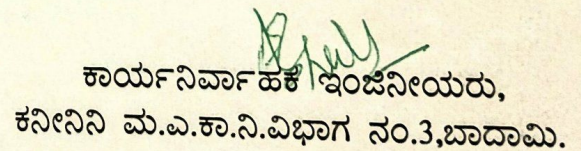 ಕಾರ್ಯನಿರ್ವಾಹಕ ಇಂಜಿನೀಯರು,
ಕನೀನಿನಿ ಮ.ಎ.ಕಾ.ನಿ.ವಿಭಾಗ ನಂ.3,ಬಾದಾಮಿ.